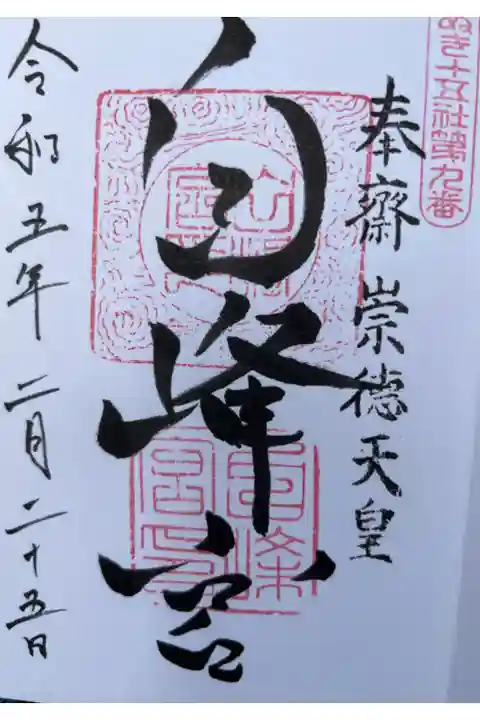 ぬき十五社第九番
奉齋 崇德天皇
白峰宮
白峰宮印
令和五年二月二十五日